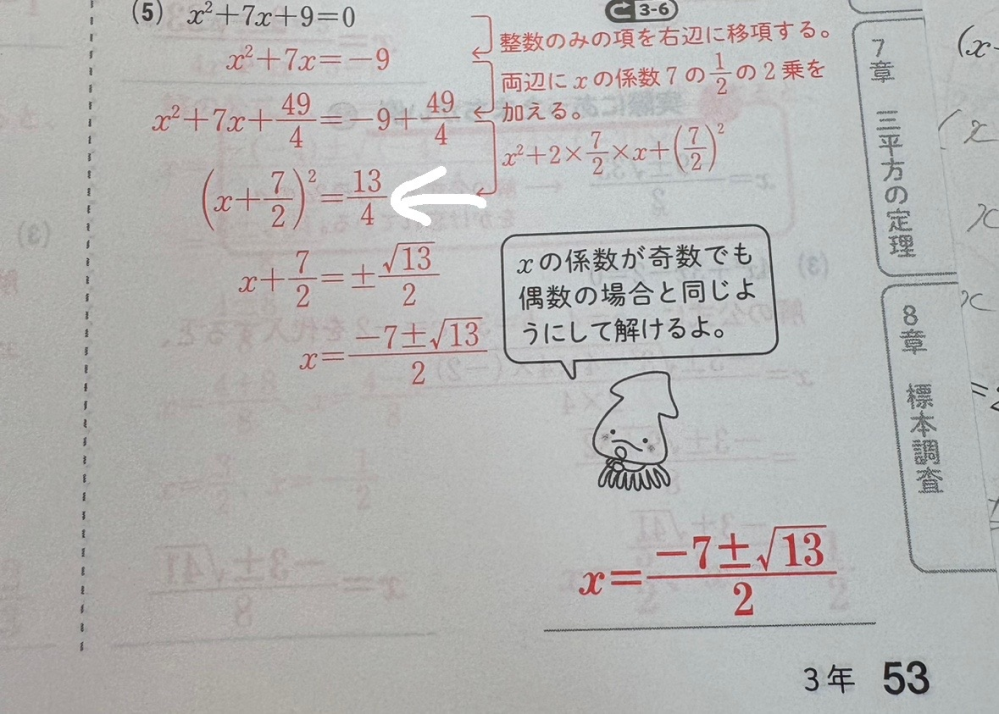 (5) x²+7x+9=0
3-6
x²+7x=−9
整数のみの項を右辺に移項する。
両辺にxの係数7の1/2の2乗を
加える。
x²+7x+49/4=−9+49/4
x²+2×7/2×x+(7/2)²
(x+7/2)²=13/4
x+7/2=±√13/2
x=(−7±√13)/2
xの係数が奇数でも
偶数の場合と同じよ
うにして解けるよ。
x=(−7±√13)/2
3年 53
7章 三平方の定理
8章 標本調査